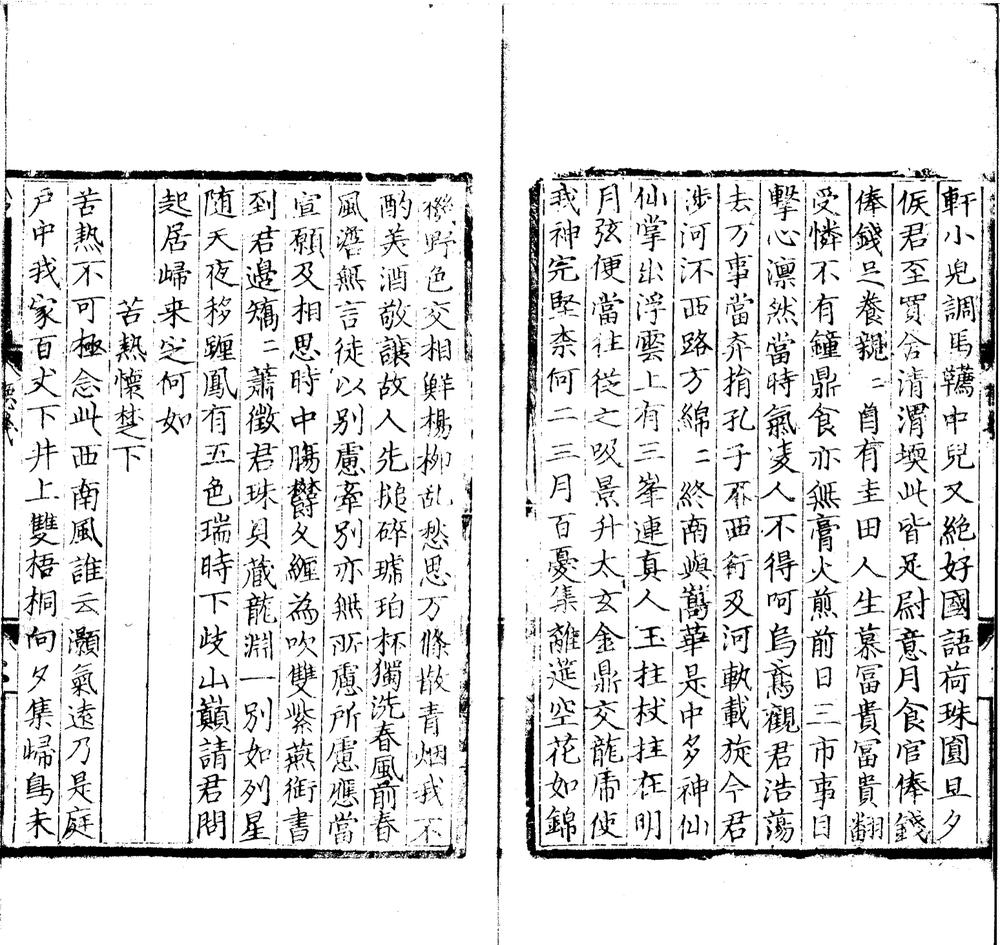 軒小兒調馬韉中兒又絕好國語荷珠圓旦夕
俟君至買舍清渭堧此皆足尉意月食官俸錢
俸錢足養親二自有圭田人生慕冨貴冨貴翻
受憐不有鐘鼎食亦無膏火煎前日三市事日
擊心凛然當時氣凌人不得呵烏鳶觀君浩蕩
去万事當弃捐孔子不西行及河軌載旋今君
涉河河西路方綿二終南與嵩華是中多神仙
仙掌出浮雲上有三峯連真人玉柱杖拄在明
月弦便當往從之吸景升太玄金鼎交龍虎使
我神完堅柰何二三月百憂集離筵空花如錦
機野色交相鮮楊柳乱愁思万條散青烟我不
酌美酒敬讓故人先搥碎琥珀杯獨洗春風前春
風澹無言徒以別慮牽別亦無所慮所慮應當
宣願及相思時中膓欝久纏為吹雙紫燕銜書
到君邊矯二蕭徵君珠貝蔵龍淵一別如列星
随天夜移躔鳳有五色瑞時下歧山巔請君問
起居歸来定何如
苦熱懷楚下
苦熱不可極念此西南風誰云灝氣遠乃是庭
戶中我家百丈下井上雙梧桐向夕集歸鳥未